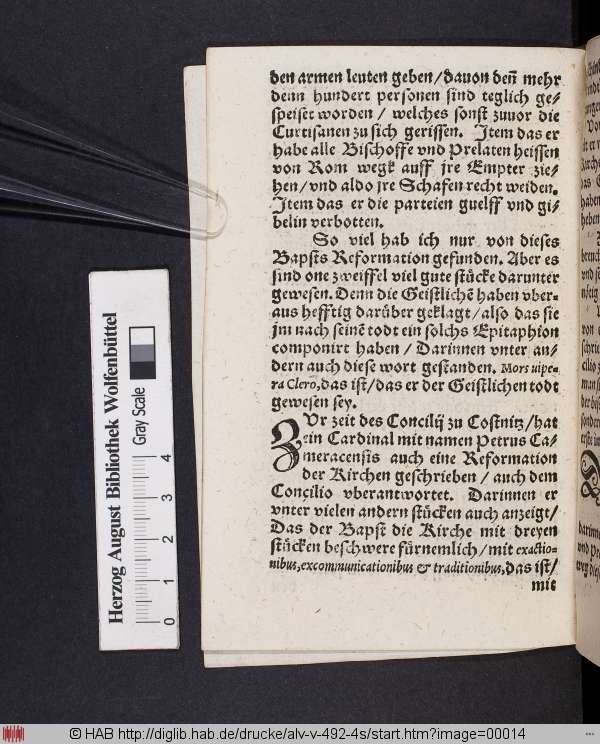 den armen leuten geben/dauon deñ mehr
denn hundert personen sind teglich ge-
speiset worden / welches sonst zuuor die
Curtisanen zu sich gerissen. Item das er
habe alle Bischoffe vnd Prelaten heissen
von Rom wegk auff jre Empter zie-
hen/vnd aldo jre Schafen recht weiden.
Item das er die parteien guelff vnd gi-
belin verbotten.
So viel hab ich nur von dieses
Bapsts Reformation gefunden. Aber es
sind one zweiffel viel gute stücke darunter
gewesen. Denn die Geistlichē haben vber-
aus hefftig darüber geklagt/also das sie
jm nach seinē todt ein solchs Epitaphion
componirt haben / Darinnen vnter an-
dern auch diese wort gestanden. Mors uipe-
ra Clero, das ist/das er der Geistlichen todt
gewesen sey.
ZVr zeit des Concilij zu Costnitz/hat
ein Cardinal mit namen Petrus Ca-
meracensis auch eine Reformation
der Kirchen geschrieben / auch dem
Concilio vberantwortet. Darinnen er
vnter vielen andern stücken auch anzeigt/
Das der Bapst die Kirche mit dreyen
stücken beschwere fürnemlich/mit exactio-
nibus, excommunicationibus & traditionibus, das ist/
mit
Herzog August Bibliothek Wolfenbüttel
Gray Scale
0 1 2 3 4
© HAB http://diglib.hab.de/drucke/alv-v-492-4s/start.htm?image=00014